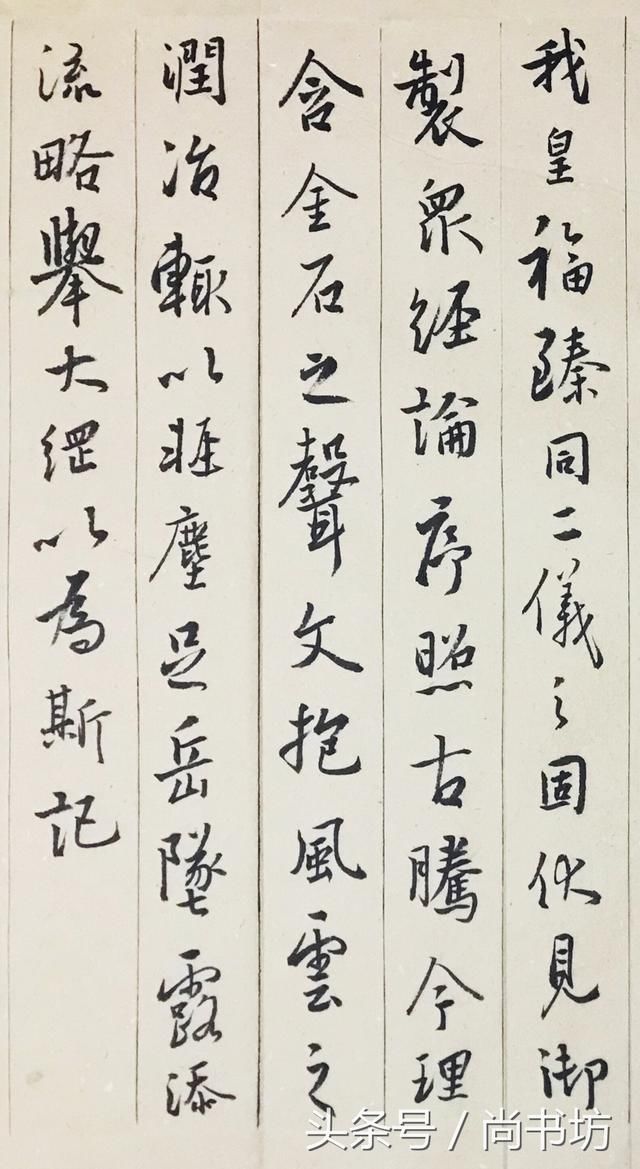 我皇福臻同二儀之固伏見御
製眾經論序照古騰今理
含金石之聲文抱風雲之
潤治輒以輕塵足岳墜露添
流略舉大綱以為斯記
头条号/尚书坊